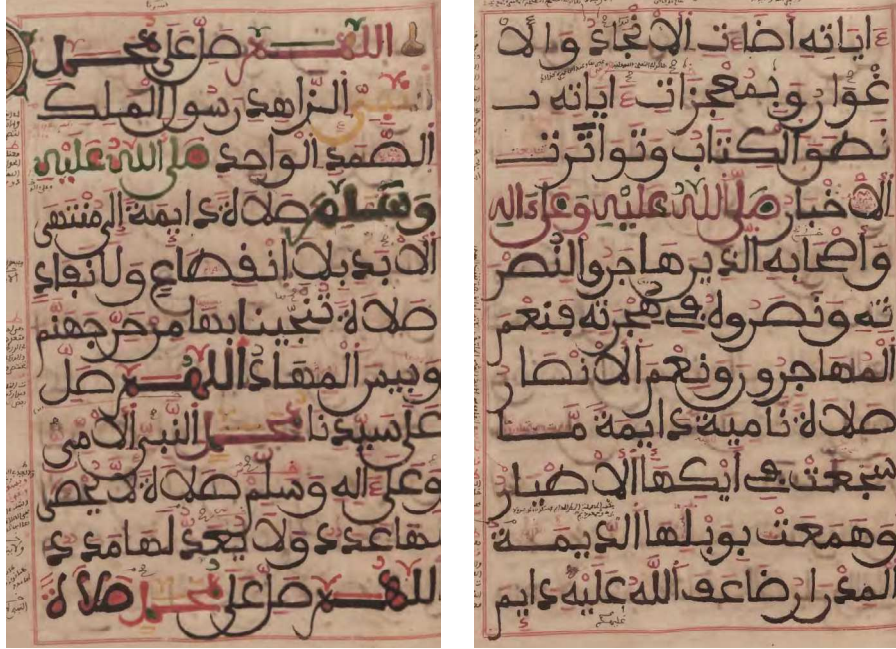 ءاياته أضاءت الأنجاد والأ
غوار وبمعجزات ءاياته
نطق الكتاب وتواترت
الأخبار صلى الله عليه وعلى ءاله
وأصحابه الذين هاجروا لنصر
ته ونصروه في هجرته فنعم
المهاجرون ونعم الأنصار
صلاة نامية دايمة مـا
سجعت في أيكها الأطيار
وهمعت بوبلها الديمـة
المدرار ضاعف الله عليه دايم
اللهم صل على محمد
النبي الزاهد رسول الملك
الصمد الواحد صلى الله عليه
وسلم صلاة دايمة إلى منتهى
الأبد بلا انقطاع ولا نفاد
صلاة تنجينا بها من حر جهنم
وبيس المهاد اللهم صل
على سيدنا محمد النبي الأمي
وعلى اله وسلم صلاة لا يحصى
لها عدد ولا يعد لها مدد
اللهم صل على محمد صلاة